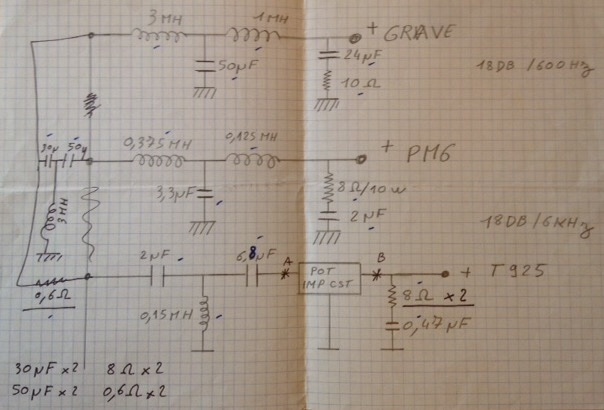 3 MH 1 MH + GRAVE
50µF 24µF 18DB/600Hz
10 Ω
30µ 50µ 0,375MH 0,125MH + PM6
3 MH 3,3µF 8Ω/10w
2µF 18DB/6KHz
2µF 6,8µF A POT IMP CST B + T925
0,6Ω 0,15MH 8Ω x2
0,47µF
30µF x2 8Ω x2
50µF x2 0,6Ω x2